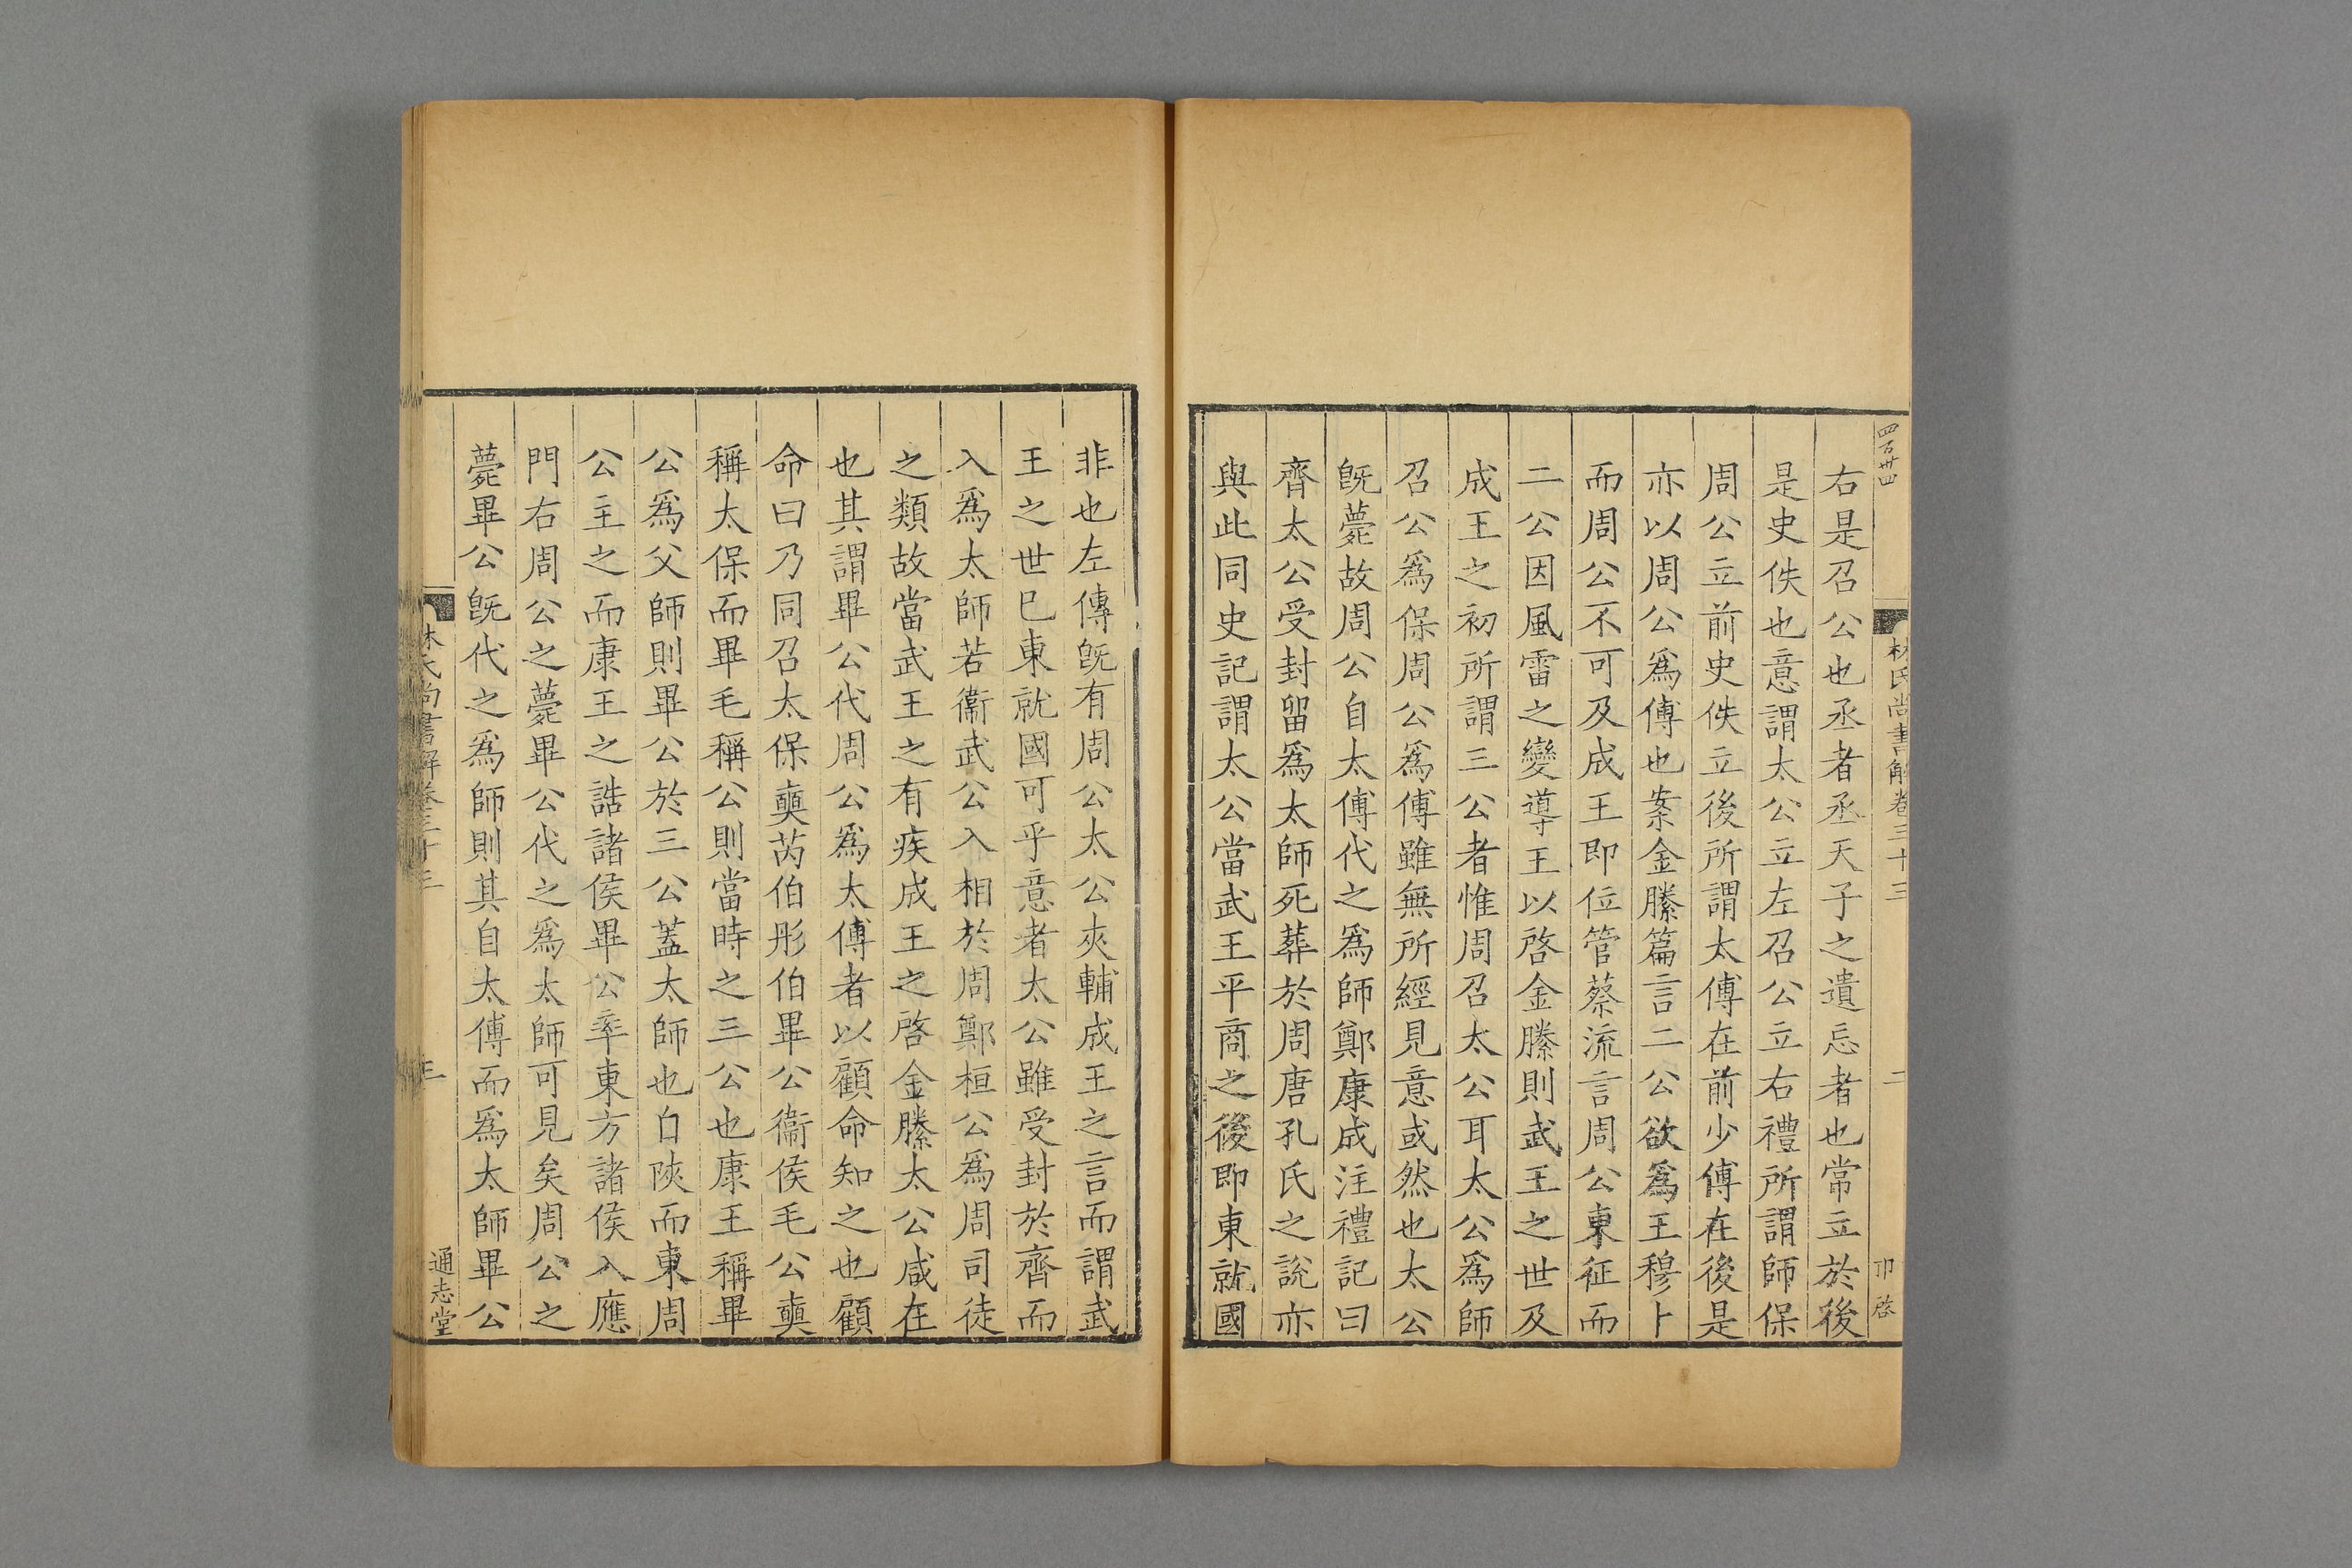 四百廿四
林氏尚書解卷三十三
二
右是召公也丞者丞天子之遺忘者也常立於後
是史佚也意謂太公立左召公立右禮所謂師保
周公立前史佚立後所謂太傅在前少傅在後是
亦以周公爲傅也案金縢篇言二公欲爲王穆卜
而周公不可及成王即位管蔡流言周公東征而
二公因風雷之變導王以啓金縢則武王之世及
成王之初所謂三公者惟周召太公耳太公爲師
召公爲保周公爲傅雖無所經見意或然也太公
旣薨故周公自太傅代之爲師鄭康成注禮記曰
齊太公受封留爲太師死葬於周唐孔氏之說亦
與此同史記謂太公當武王平商之後即東就國
非也左傳旣有周公太公夾輔成王之言而謂武
王之世已東就國可乎意者太公雖受封於齊而
入爲太師若衞武公入相於周鄭桓公爲周司徒
之類故當武王之有疾成王之啓金縢太公咸在
也其謂畢公代周公爲太傅者以顧命知之也顧
命曰乃同召太保奭芮伯彤伯畢公衞侯毛公奭
稱太保而畢毛稱公則當時之三公也康王稱畢
公爲父師則畢公於三公蓋太師也自陝而東周
公主之而康王之誥諸侯畢公率東方諸侯入應
門右周公之薨畢公代之爲太師可見矣周公之
薨畢公旣代之爲師則其自太傅而爲太師畢公
林氏尚書解卷三十三
三
通志堂